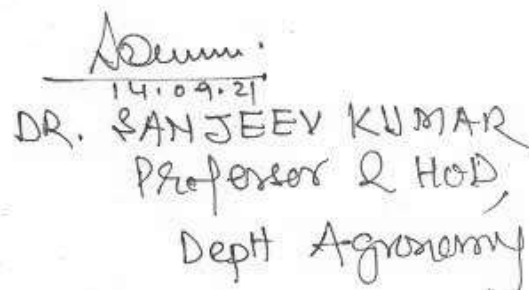 14.09.21
DR. SANJEEV KUMAR
Professor & HOD,
Deptt Agronomy